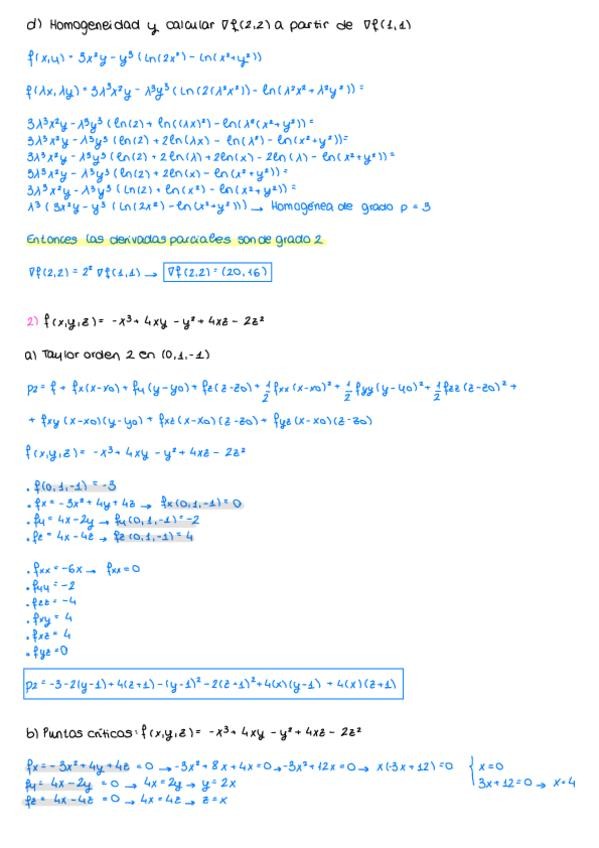 d) Homogeneidad y calcular ∇f(2,2) a partir de ∇f(1,1)
f(x,y) = 3x²y - y³ (ln(2x²) - ln(x²+y²))
f(λx, λy) = 3λ³x²y - λ³y³ (ln(2(λ²x²)) - ln(λ²x² + λ²y²)) =
3λ³x²y - λ³y³ (ln(2) + ln((λx)²) - ln(λ²(x²+y²)) =
3λ³x²y - λ³y³ (ln(2) + 2ln(λx) - ln(λ²) - ln(x²+y²)) =
3λ³x²y - λ³y³ (ln(2) + 2ln(λ) + 2ln(x) - 2ln(λ) - ln(x²+y²)) =
3λ³x²y - λ³y³ (ln(2) + 2ln(x) - ln(x²+y²)) =
3λ³x²y - λ³y³ (ln(2) + ln(x²) - ln(x²+y²)) =
λ³ (3x²y - y³ (ln(2x²) - ln(x²+y²))) → Homogénea de grado p = 3
Entonces las derivadas parciales son de grado 2
∇f(2,2) = 2² ∇f(1,1) → ∇f(2,2) = (20,16)
2) f(x,y,z) = -x³ + 4xy - y² + 4xz - 2z²
a) Taylor orden 2 en (0,1,-1)
p2 = f + fx(x-x0) + fy(y-y0) + fz(z-z0) + 1/2 fxx(x-x0)² + 1/2 fyy(y-y0)² + 1/2 fzz(z-z0)² +
+ fxy(x-x0)(y-y0) + fxz(x-x0)(z-z0) + fyz(x-x0)(z-z0)
f(x,y,z) = -x³ + 4xy - y² + 4xz - 2z²
. f(0,1,-1) = -3
. fx = -3x² + 4y + 4z → fx(0,1,-1) = 0
. fy = 4x - 2y → fy(0,1,-1) = -2
. fz = 4x - 4z → fz(0,1,-1) = 4
. fxx = -6x → fxx = 0
. fyy = -2
. fzz = -4
. fxy = 4
. fxz = 4
. fyz = 0
p2 = -3 - 2(y-1) + 4(z+1) - (y-1)² - 2(z+1)² + 4(x)(y-1) + 4(x)(z+1)
b) Puntos críticos: f(x,y,z) = -x³ + 4xy - y² + 4xz - 2z²
fx = -3x² + 4y + 4z = 0 → -3x² + 8x + 4x = 0 → -3x² + 12x = 0 → x(-3x + 12) = 0 { x = 0
fy = 4x - 2y = 0 → 4x = 2y → y = 2x 3x + 12 = 0 → x = 4
fz = 4x - 4z = 0 → 4x = 4z → z = x